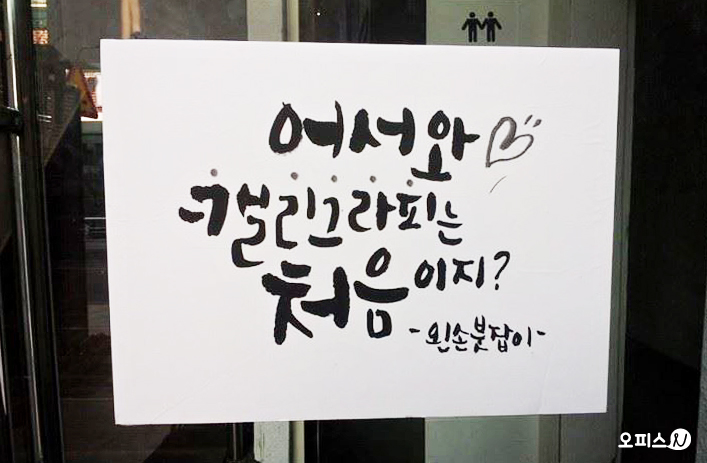 어서와
캘리그라피는
처음이지?
-왼손붓잡이-
오피스N